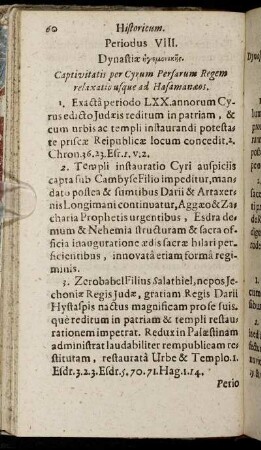 60 Historicum.
Periodus VIII.
Dynastiæ ἡγεμονικῆς.
Captivitatis per Cyrum Persarum Regem
relaxatio usque ad Hasamanæos.
1. Exactâ periodo LXX. annorum Cy-
rus edicto Judæis reditum in patriam, &
cum urbis ac templi instaurandi potesta-
te priscæ Reipublicæ locum concedit. 2.
Chron. 36. 23. Esr. 1. v. 2.
2. Templi instauratio Cyri auspiciis
capta sub Cambyse Filio impeditur, man-
dato postea & sumtibus Darii & Artaxer-
nis Longimani continuatur, Aggæo & Za-
charia Prophetis urgentibus, Esdra de-
mum & Nehemia structuram & sacra of-
ficia inauguratione ædis sacræ hilari per-
ficientibus, innovatâ etiam formâ regi-
minis.
3. Zerobabel Filius Salathiel, nepos Je-
choniæ Regis Judæ, gratiam Regis Darii
Hystaspis nactus magnificam pro se suis-
que reditum in patriam & templi restau-
rationem impetrat. Redux in Palæstinam
administrat laudabiliter rempublicam re-
stitutam, restauratâ Urbe & Templo. 1.
Esdr. 3. 2. 3. Esdr. 5. 70. 71. Hag. 1. 14.
Perio